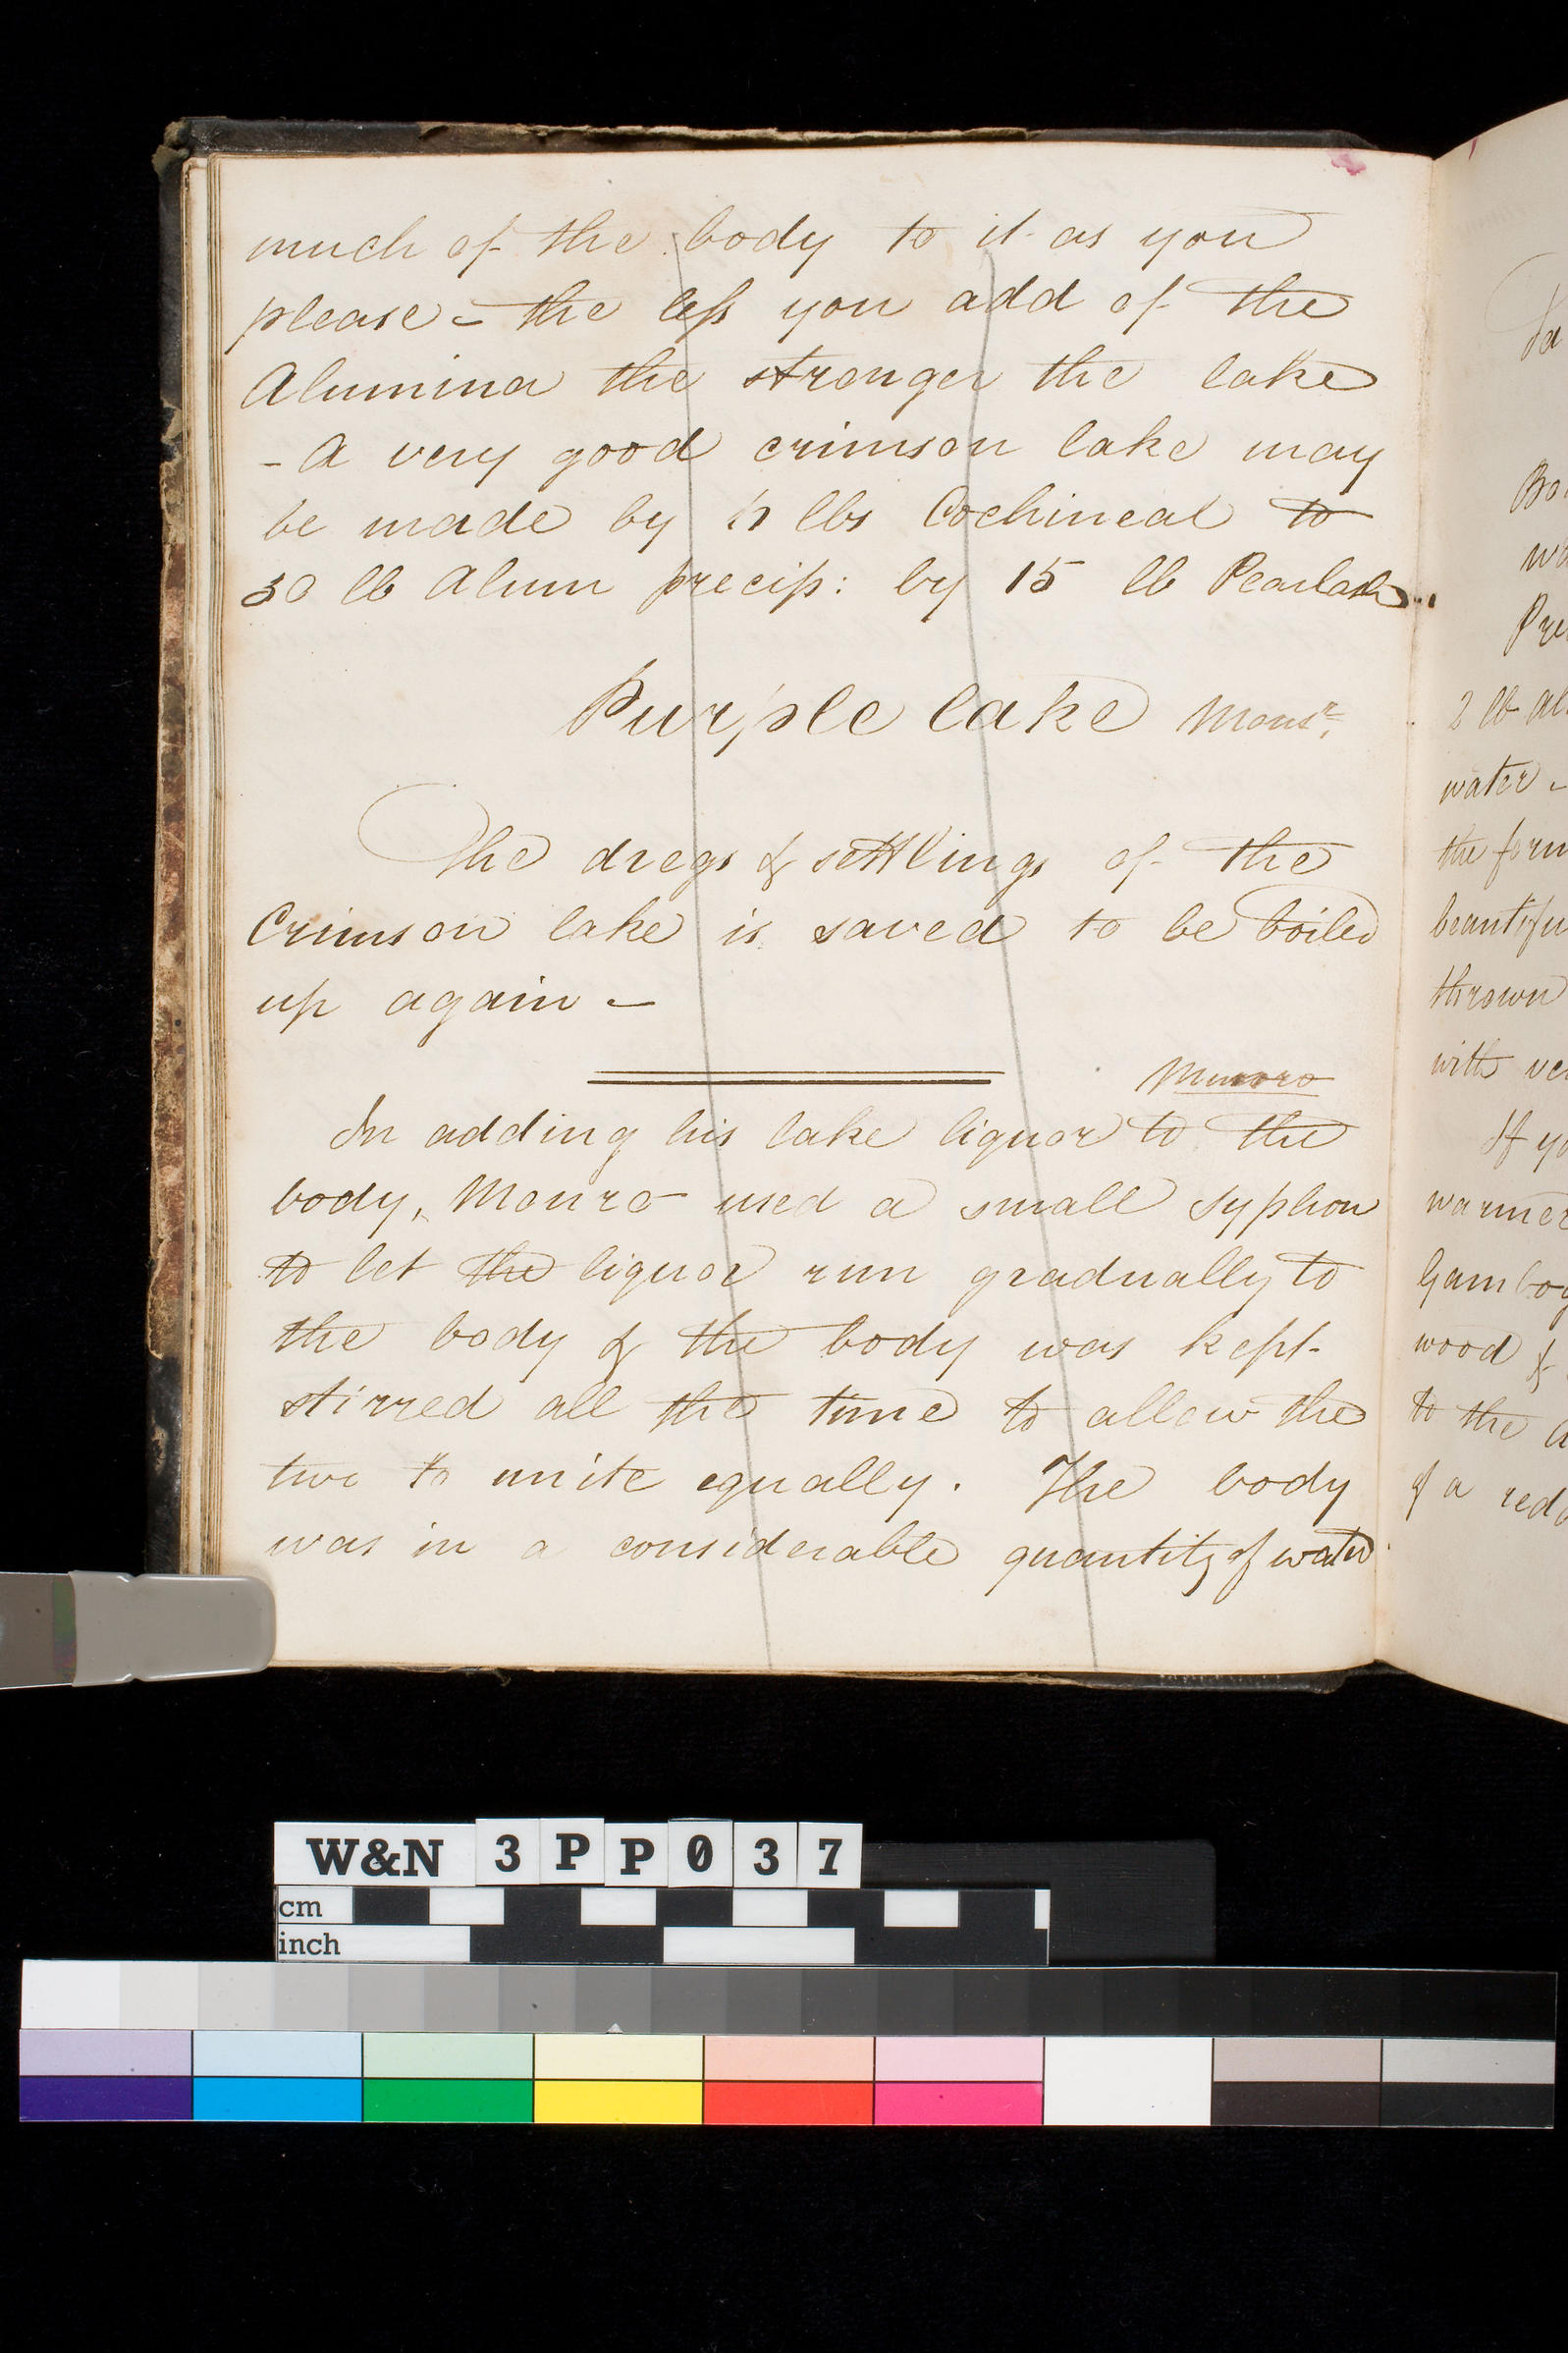 much of the body to it as you
please – the less you add of the
Alumina the stronger the lake
– A very good crimson lake may
be made by lbs Cochineal to
30 lb Alum precip: by 15 lb Pearlash
Purple lake Monsr.
The dregs & settlings of the
Crimson lake is saved to be boiled
up again –
Munro
In adding his lake liquor to the
body, Monro used a small syphon
to let the liquor run gradually to
the body & the body was kept
stirred all the time to allow the
two to unite equally. The body
was in a considerable quantity of water
Bo
wa
Pre
2 lb al
water –
the form
beautifu
thrown
with ve
If yo
warmer
Gambog
wood &
to the a
of a redd
W&N 3PP037
cm
inch